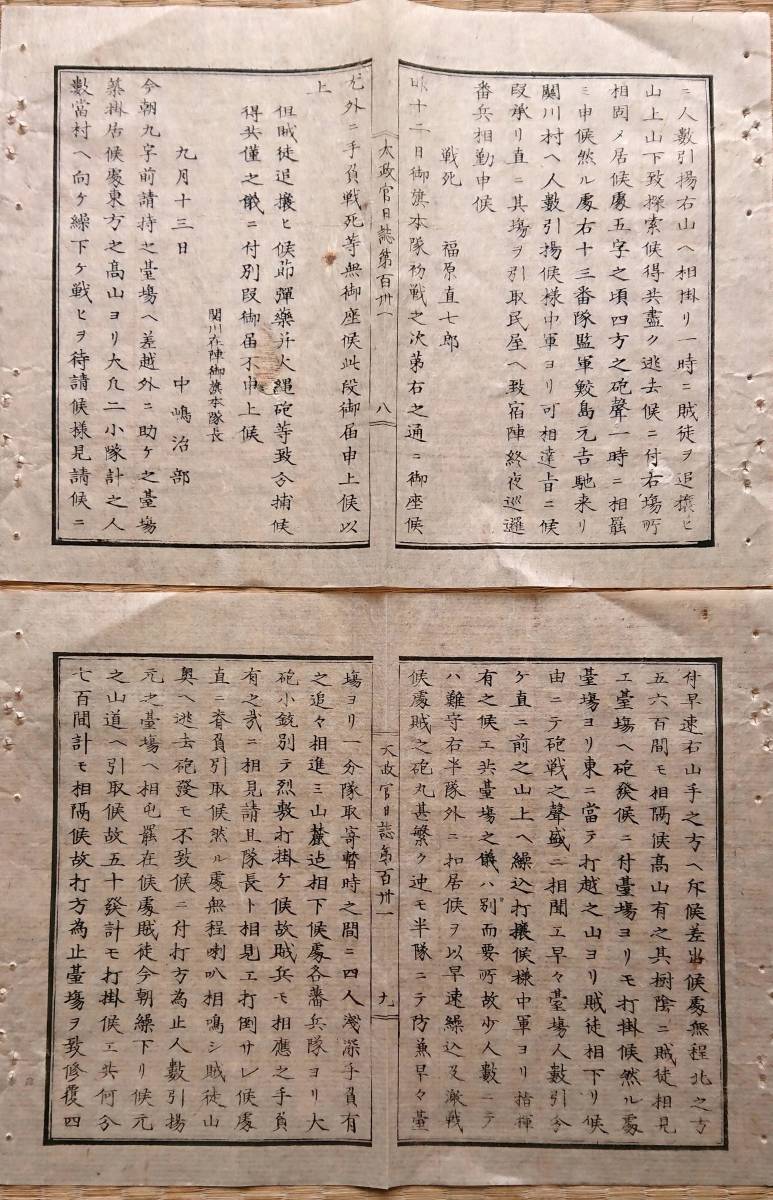 ニ人數引揚右山ヘ相掛リ一時ニ賊徒ヲ追攘ヒ
山上山下致探索候得共盡ク逃去候ニ付右塲所
相固メ居候處五字之頃四方之砲聲一時ニ相罷
ミ申候然ル處右十三番隊監軍鮫島元吉馳来リ
関川村ヘ人數引揚候様中軍ヨリ可相達旨ニ候
段承リ直ニ其塲ヲ引取民屋ヘ致宿陣終夜巡邏
番兵相勤申候
戦死　福原直七郎
昨十二日御旗本隊初戦之次第右之通ニ御座候
太政官日誌第百卅一　八
尤外ニ手負戦死等無御座候此段御届申上候以
上
但賊徒追攘ヒ候節彈藥并火縄砲等致分捕候
得共僅之儀ニ付別段御届不申上候
関川在陣御旗本隊長
九月十三日　中嶋治部
今朝九字前請持之臺塲ヘ差越外ニ助ケ之臺塲
築掛居候處東方之高山ヨリ大凡二小隊計之人
數當村ヘ向ケ繰下ケ戦ヒヲ待請候様見請候ニ
付早速右山手之方ヘ斥候差出候處無程北之方
五六百間モ相隔候高山有之其樹陰ニ賊徒相見
エ臺塲ヘ砲發候ニ付臺塲ヨリモ打掛候然ル處
臺塲ヨリ東ニ當テ打越之山ヨリ賊徒相下リ候
由ニテ砲戦之聲盛ニ相聞エ早々臺塲人數引分
ケ直ニ前之山上ヘ繰込打攘候様中軍ヨリ指揮
有之候エ共臺塲之儀ハ別而要所故少人數ニテ
ハ難守右半隊外ニ扣居候ヲ以早速繰込及激戦
候處賊之砲丸甚繁ク迚モ半隊ニテ防兼早々臺
太政官日誌第百卅一　九
塲ヨリ一分隊取寄暫時之間ニ四人淺深手負有
之追々相進ミ山麓迠相下候處各藩兵隊ヨリ大
砲小銃別テ烈敷打掛ケ候故賊兵モ相應之手負
有之哉ニ相見請且隊長ト相見エ打倒サレ候處
直ニ脊負引取候然ル處無程喇叭相鳴シ賊徒山
奥ヘ逃去砲發モ不致候ニ付打方為止人數引揚
元之臺塲ヘ相屯罷在候處賊徒今朝繰下リ候元
之山道ヘ引取候故五十發計モ打掛候エ共何分
七百間計モ相隔候故打方為止臺塲ヲ致修覆四